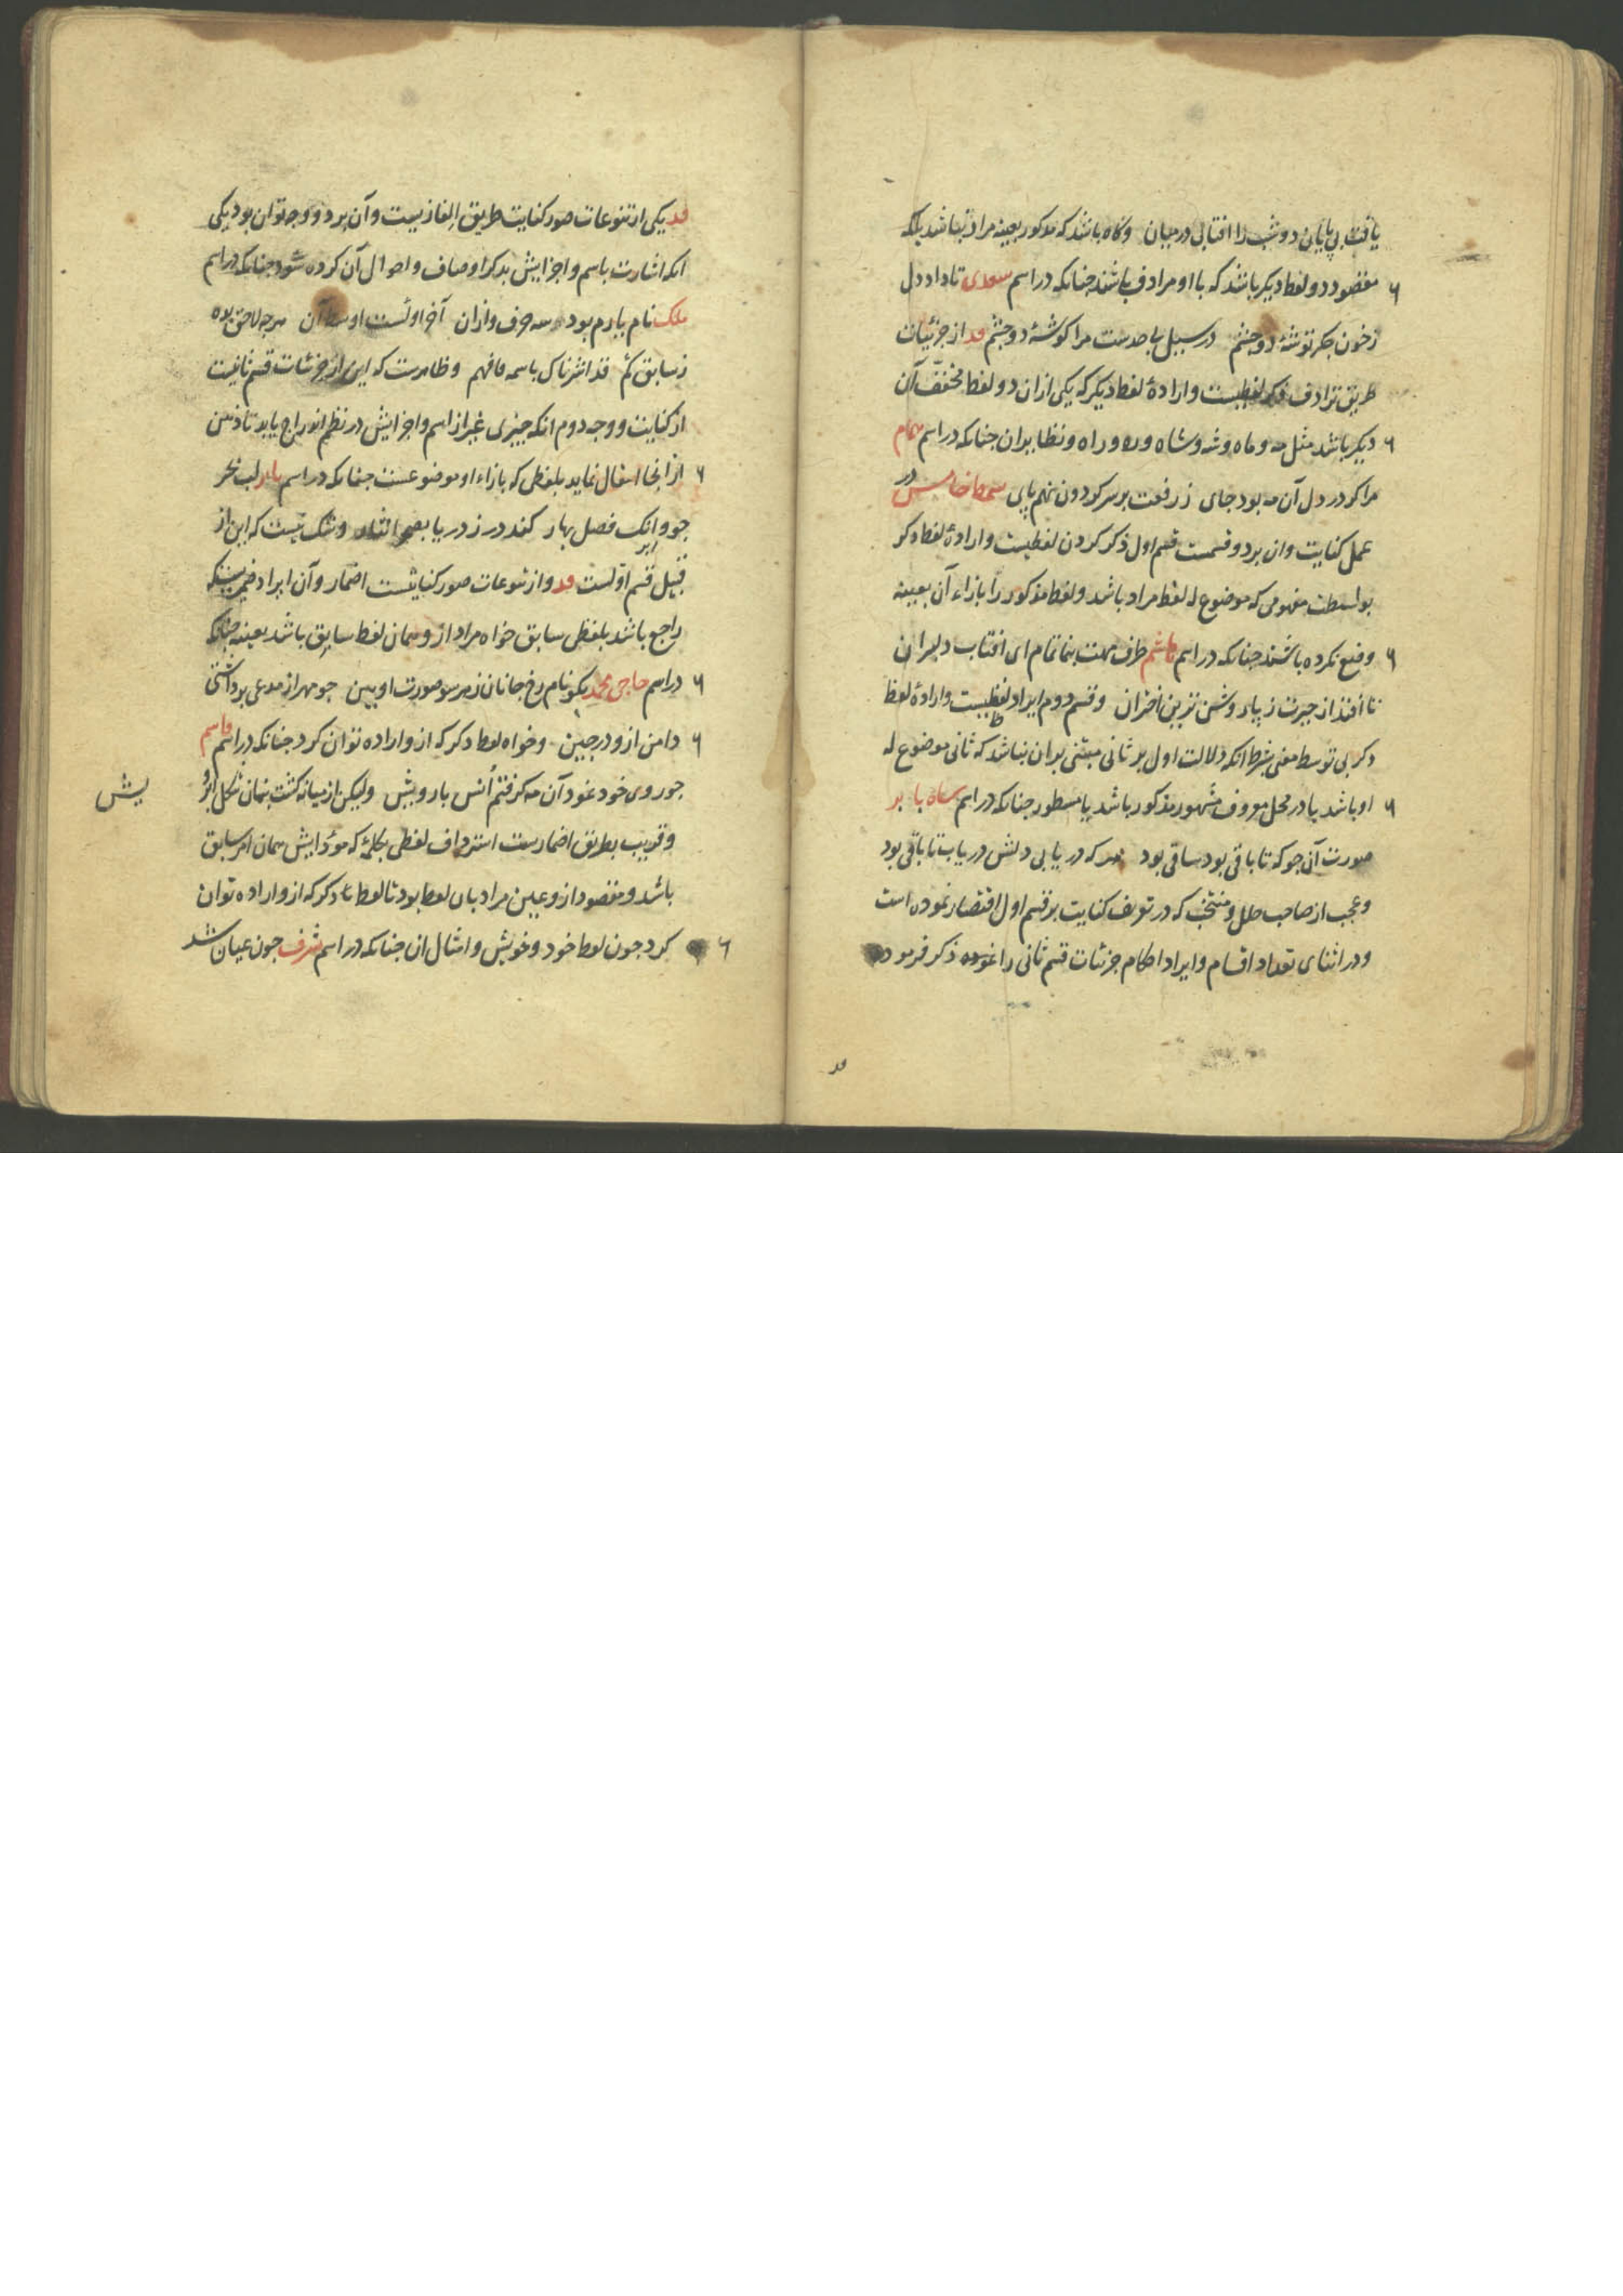 یافت بی پایان دو شب را افتابی در میان وکاه باشد که مذکور بعینه مراد نباشد بلکه
مقصود دو لفظ دیکر باشد که با او مرادف باشند چنانکه در اسم سعدی تا داد دل
زخون جکر توشهٔ دو چشم در سبیل مرا کوشهٔ دو چشم قد از جزئیات
طریق ترادف ذکر لفظیست وارادهٔ لفظ دیکر که یکی ازان دو لفظ مخفف آن
دیکر باشد مثل مه وماه وشه وشاه وره وراه ونظایر ان جنانکه در اسم همام
مرا کر در دل آن مه بود جای ز رفعت بر سر کردون نهم پای در
عمل کنایت وان بر دو قسمست قسم اول ذکر کردن لفظیست وارادهٔ لفظ دکر
بواسطت مفهومی که موضوع له لفظ مراد باشد ولفظ مذکور را بازاء آن بعینه
وضع نکرده باشند جنانکه در اسم هاشم طرف مهت بنما تمام ای افتاب دلبران
تا افتد از حیرت ز پا روشن ترین اختران وقسم دوم ایراد لفظیست وارادهٔ لفظ
دکر بی توسط معنی بشرط انکه دلالت اول بر ثانی مبتنی بران نباشد که ثانی موضوع له
او باشد یا در محل معروف مشهور مذکور باشد یا مسطور جنانکه در اسم شاه بابر
صورت آن جو که تا باقی بود ساقی بود که دریابی دلش دریاب تا باقی بود
وعجب از صاحب حلل ومنتخب که در تعریف کنایت بر قسم اول اقتصار نموده است
ودر اثنای تعداد اقسام وایراد احکام جزئیات قسم ثانی را ذکر فرموده
قد
قد یکی از تنوعات صور کنایت طریق الغازیست وآن بر دو وجه توان بود یکی
انکه اشارت باسم واجزایش بذکر اوصاف واحوال آن کرده شود جنانکه در اسم
ملک نام یارم بود سه حرف وازان آخر اولست اوسط آن هرچه لاحق بده
ز سابق کم قد اشرناک باسمه فافهم وظاهرست که این از جزئیات قسم ثانیست
از کنایت ووجه دوم انکه چیزی غیر از اسم واجزایش در نظم اندراج یابد تا ذهن
از انجا انتقال نماید بلفظی که بازاء او موضوعست جنانکه در اسم بابر لب بحر
جو وانک فصل بهار کند در ز دریا وشک نیست که این از
ابر
قبیل قسم اولست قد واز تنوعات صور کنایتست اضمار وآن ایراد ضمیریستکه
راجع باشد بلفظی سابق خواه مراد از وهمان لفظ سابق باشد بعینه جنانکه
در اسم حاجی محمد بکو نام رخ جانان زهر سو صورت او بین جو مهر از مدعی بوداشتی
دامن ازو درجین وخواه لفظ دکر که ازو اراده توان کرد جنانکه در اسم قاسم
جو روی خود نمود آن مه کرفتم اُنس با رویش ولیکن از میانه کشت پنهان شکل ابرو
یش
وقریب بطریق اضمارست استرداف لفظی بکلمهٔ که مؤدایش همان امر سابق
باشد ومقصود ازو عین مراد بان لفظ بود تا لفظ دکر که ازو اراده توان
کرد جون لفظ خود وخویش وامثال ان جنانکه در اسم شرف جون عیان شد